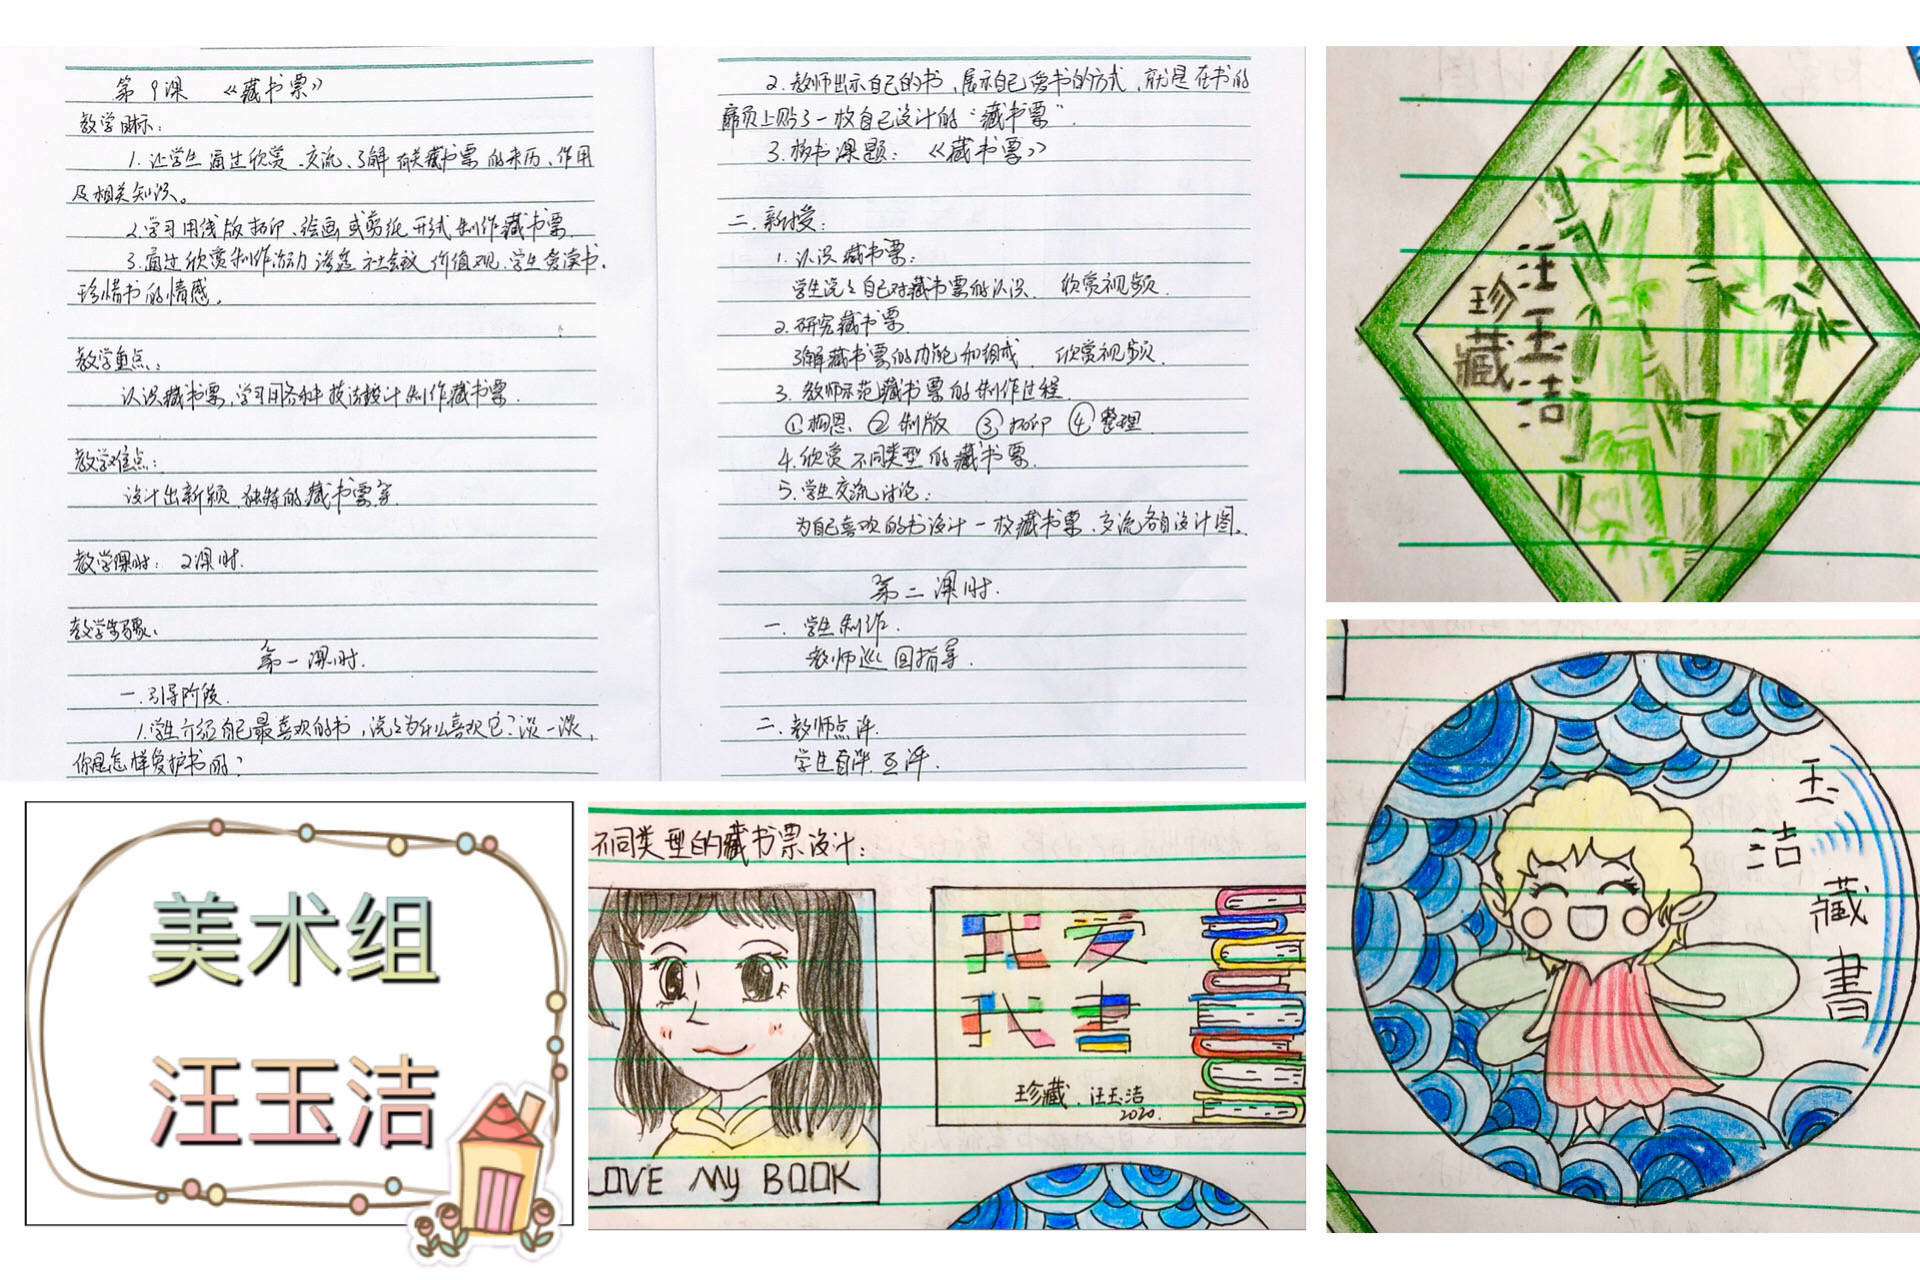 第9课 《藏书票》
教学目标：
1.让学生通过欣赏、交流、了解有关藏书票的来历、作用
及相关知识。
2.学习用线版拓印、绘画或剪纸形式制作藏书票.
3.通过欣赏制作活动渗透社会主义价值观.学生爱读书.
珍惜书的情感.
教学重点：
认识藏书票,学习用各种技法设计制作藏书票.
教学难点：
设计出新颖、独特的藏书票
教学课时： 2课时.
教学步骤：
第一课时.
一.引导阶段.
1.学生介绍自己最喜欢的书,说说为什么喜欢它?谈一谈,
你是怎样爱护书的?
2.教师出示自己的书,展示自己爱书的方式,就是在书的
扉页上贴了一枚自己设计的“藏书票”.
3.板书课题：《藏书票》
二.新授：
1.认识藏书票：
学生说说自己对藏书票的认识. 欣赏视频.
2.研究藏书票.
了解藏书票的功能和组成. 欣赏视频.
3.教师示范藏书票的制作过程.
①构思、②制版 ③拓印 ④整理.
4.欣赏不同类型的藏书票.
5.学生交流讨论：
为自己喜欢的书设计一枚藏书票.交流各自设计图.
第二课时.
一.学生制作.
教师巡回指导.
二.教师点评.
学生自评.互评.
汪玉洁
珍藏
玉洁藏書
美术组
汪玉洁
不同类型的藏书票设计：
LOVE My BOOK
我爱
我書
珍藏.汪玉洁
2020.